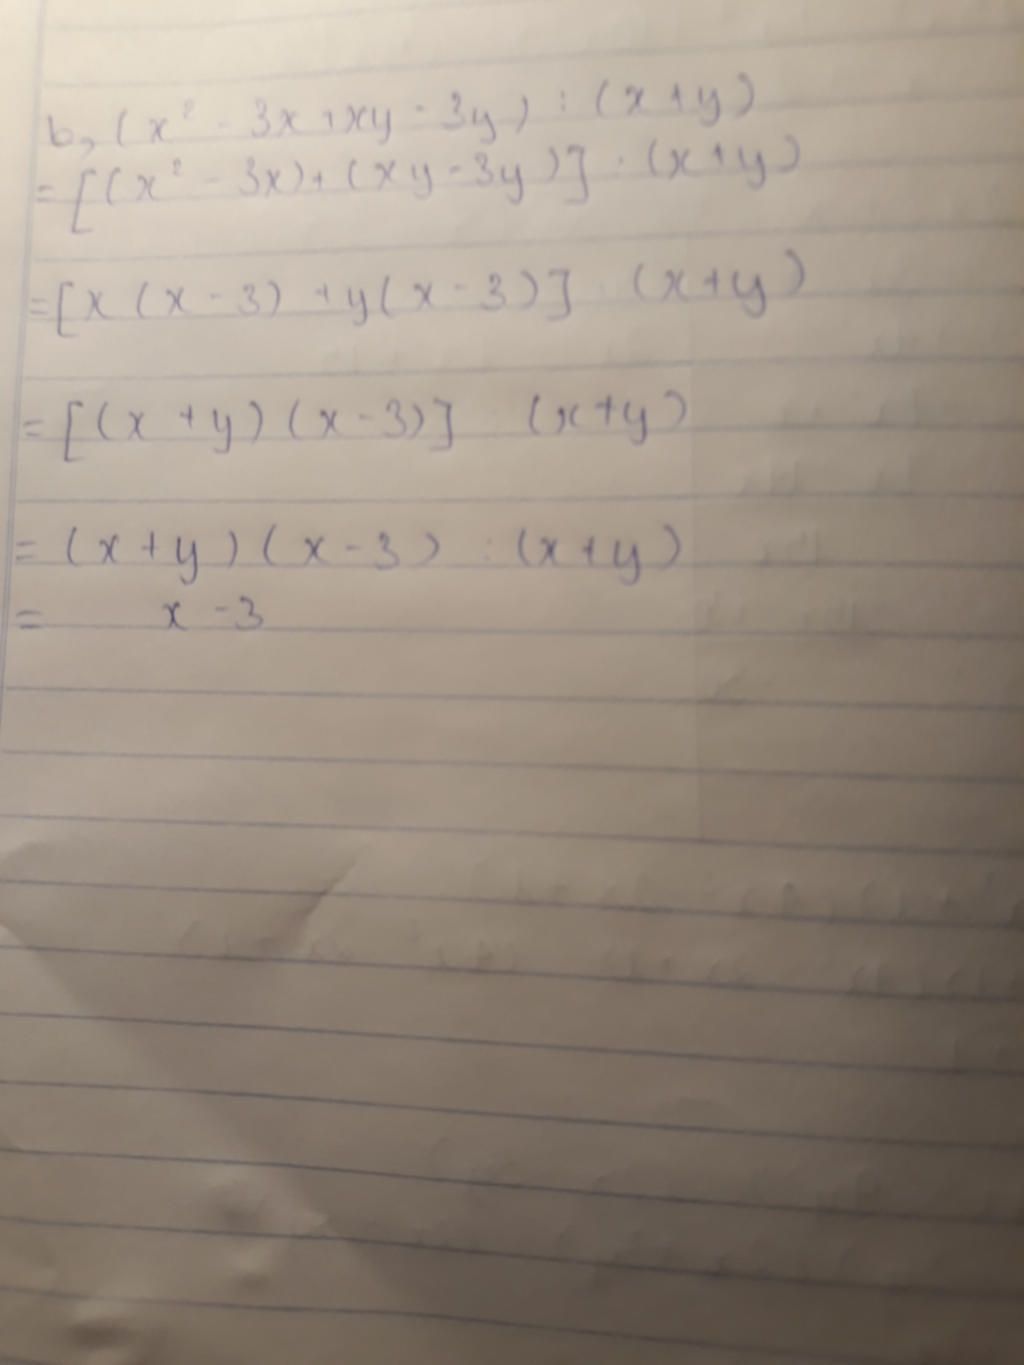 b, (x² - 3x + xy - 3y) : (x + y)
= [(x² - 3x) + (xy - 3y)] : (x + y)
= [x (x - 3) + y (x - 3)] : (x + y)
= [(x + y) (x - 3)] (x + y)
= (x + y) (x - 3) : (x + y)
= x - 3